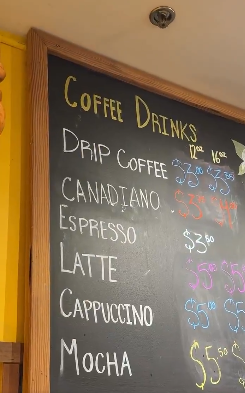 COFFEE DRINKS
12oz 16oz
DRIP COFFEE $3.00
CANADIANO
ESPRESSO $3.50
LATTE $5.00
CAPPUCCINO $5.00
MOCHA $5.50